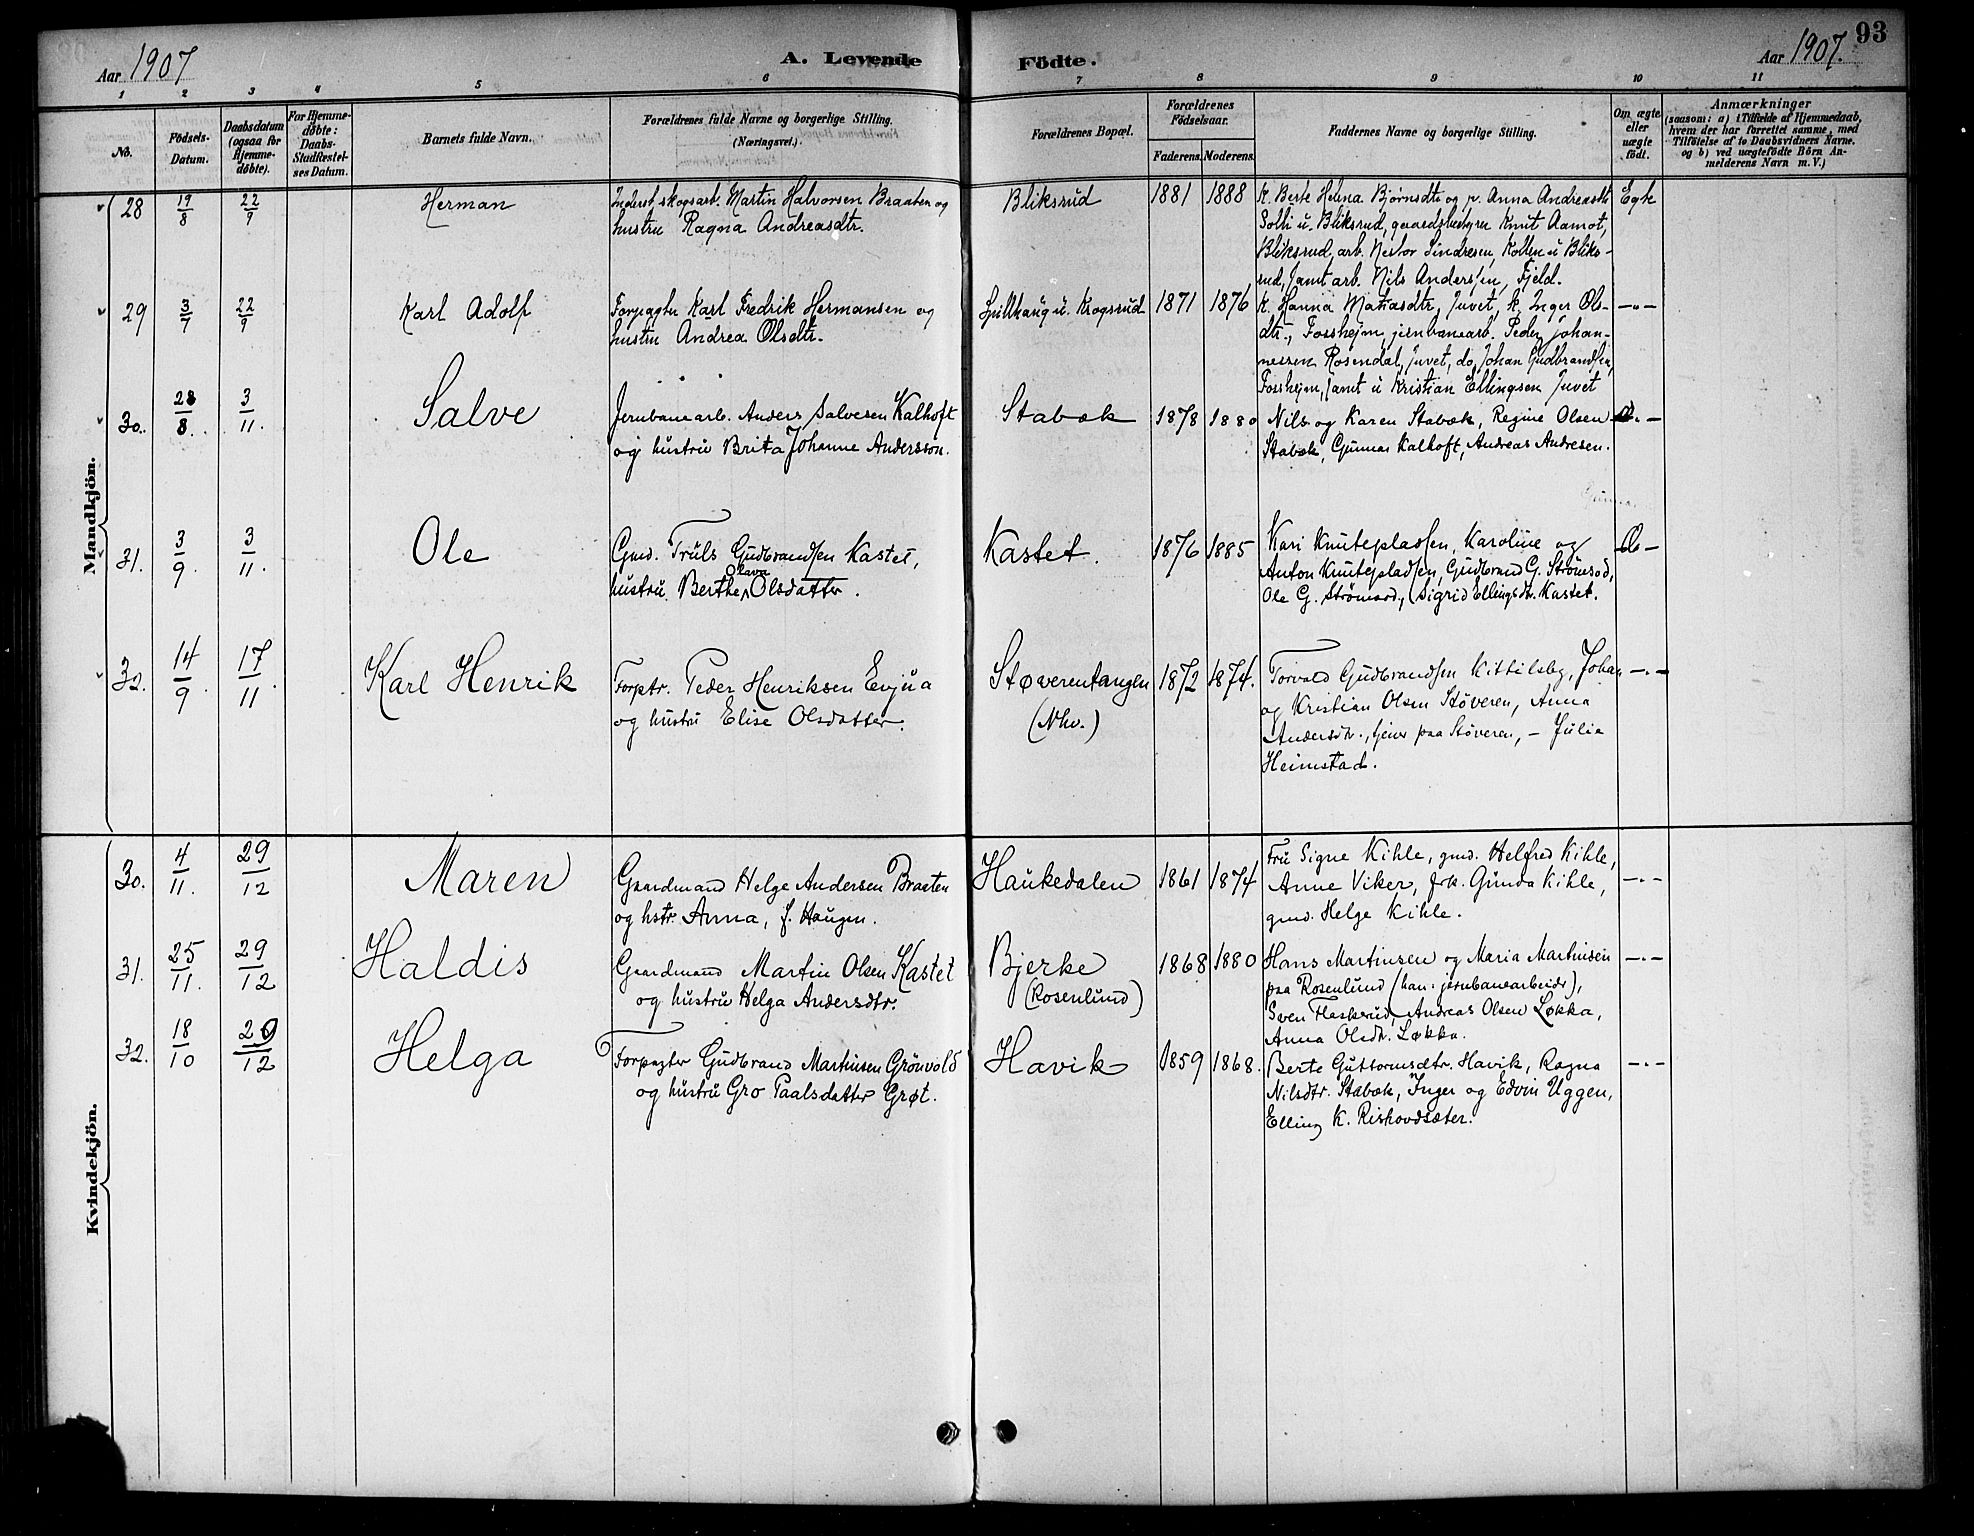 93
Aar 1907
A. Levende
Födte.
Aar 1907.
1 2 3 4 5 6 7 8 9 10 11
No.
Födsels-
Datum.
Daabsdatum
(ogsaa for
Hjemme-
døbte).
For Hjemme-
døbte:
Daabs-
Stadfæstel-
ses Datum.
Barnets fulde Navn.
Forældrenes fulde Navne og borgerlige Stilling.
(Næringsvei.)
Forældrenes Bopæl.
Forældrenes
Födselsaar.
Faderens.
Moderens.
Faddernes Navne og borgerlige Stilling.
Om ægte
eller
uægte
født.
Anmærkninger
(saasom: a) i Tilfælde af Hjemmedaab,
hvem der har forrettet samme, med
Tilföielse af to Daabsvidners Navne.
og b) ved uægtefödte Börn An-
melderens Navn m. V.)
Mandkjön.
28
19/8
22/9
Herman
skogsarb. Martin Halvorsen Braaten og
hustru Ragna Andreasdtr.
Bliksrud
1881
1888
k. Berte Helena Bjørnsdtr og p. Anna Andreasdtr
Solli u. Bliksrud, gaardsbestyrer Knut Aamot,
Bliksrud, arb. Nestor Sindresen, Kollen u Bliks-
rud, samt arb. Nils Andersen, Fjeld.
Egte
29
3/7
22/9
Karl Adolf
Forpagter Karl Fredrik Hermansen og
hustru Andrea Olsdtr.
Spillhaug u. Krogsrud
1871
1876
k. Hanna Mattiasdtr, Juvet, k. Inger Ols-
dtr., Fossheim, jernbanearb. Peder Johan-
nessen Rosendal, Juvet, do. Johan Gudbrandsen,
Fossheim, samt u Kristian Ellingsen Juvet
—"—
30.
28/8.
3/11.
Salve
Jernbanearb. Anders Salvesen Kalhoft
og hustru Brita Johanne Andersson.
Stabæk
1878
1880
Nils og Karen Stabæk, Regine Olsen
Stabæk, Gunnar Kalhoft, Andreas Andresen.
31.
3/9.
3/11.
Ole
Gmd. Truls Gudbrandsen Kastet,
Olava
hustru Berthe Olsdatter.
Kastet.
1876
1885
Kari Knutepladsen, Karoline og
Anton Knutepladsen, Gudbrand G. Strømsod,
Ole G. Strømsod, Sigrid Ellingsdtr. Kastet.
32.
14/9.
17/11.
Karl Henrik
Forptr. Peder Henriksen Evjua
og hustru Elise Olsdatter.
Støverentangen
(Nhv.)
1872
1874.
Torvald Gudbrandsen Kittilsby, Johan
og Kristian Olsen Støveren, Anna
Andersdtr., tjener paa Støveren, – Julia
Heimstad.
—"—
Kvindekjön.
30.
4/11.
29/12
Maren
Gaardmand Helge Andersen Braaten
og hstr. Anna, f. Haugen.
Haukedalen
1861
1874
Fru Signe Kihle, gmd. Helfred Kihle,
Anne Viker, frk. Gunda Kihle,
gmd. Helge Kihle.
—"—
31.
25/11.
29/12
Haldis
Gaardmand Martin Olsen Kastet
og hustru Helga Andersdtr.
Bjerke
(Rosenlund)
1868
1880
Hans Martinsen og Maria Martinsen
paa Rosenlund (han: jernbanearbeider),
Sven Flaskerud, Andreas Olsen Løkka,
Anna Olsdtr. Løkka.
—"—
32.
18/10
29/12
Helga
Forpagter Gudbrand Martinsen Grönvold
og hustru Gro Paalsdatter Grøt.
Havik
1859
1868.
Berte Guttormsdtr. Havik, Ragna
Nilsdtr. Stabæk, Inger og Edvin Uggen,
Elling K. Rishovdsæter.
—"—